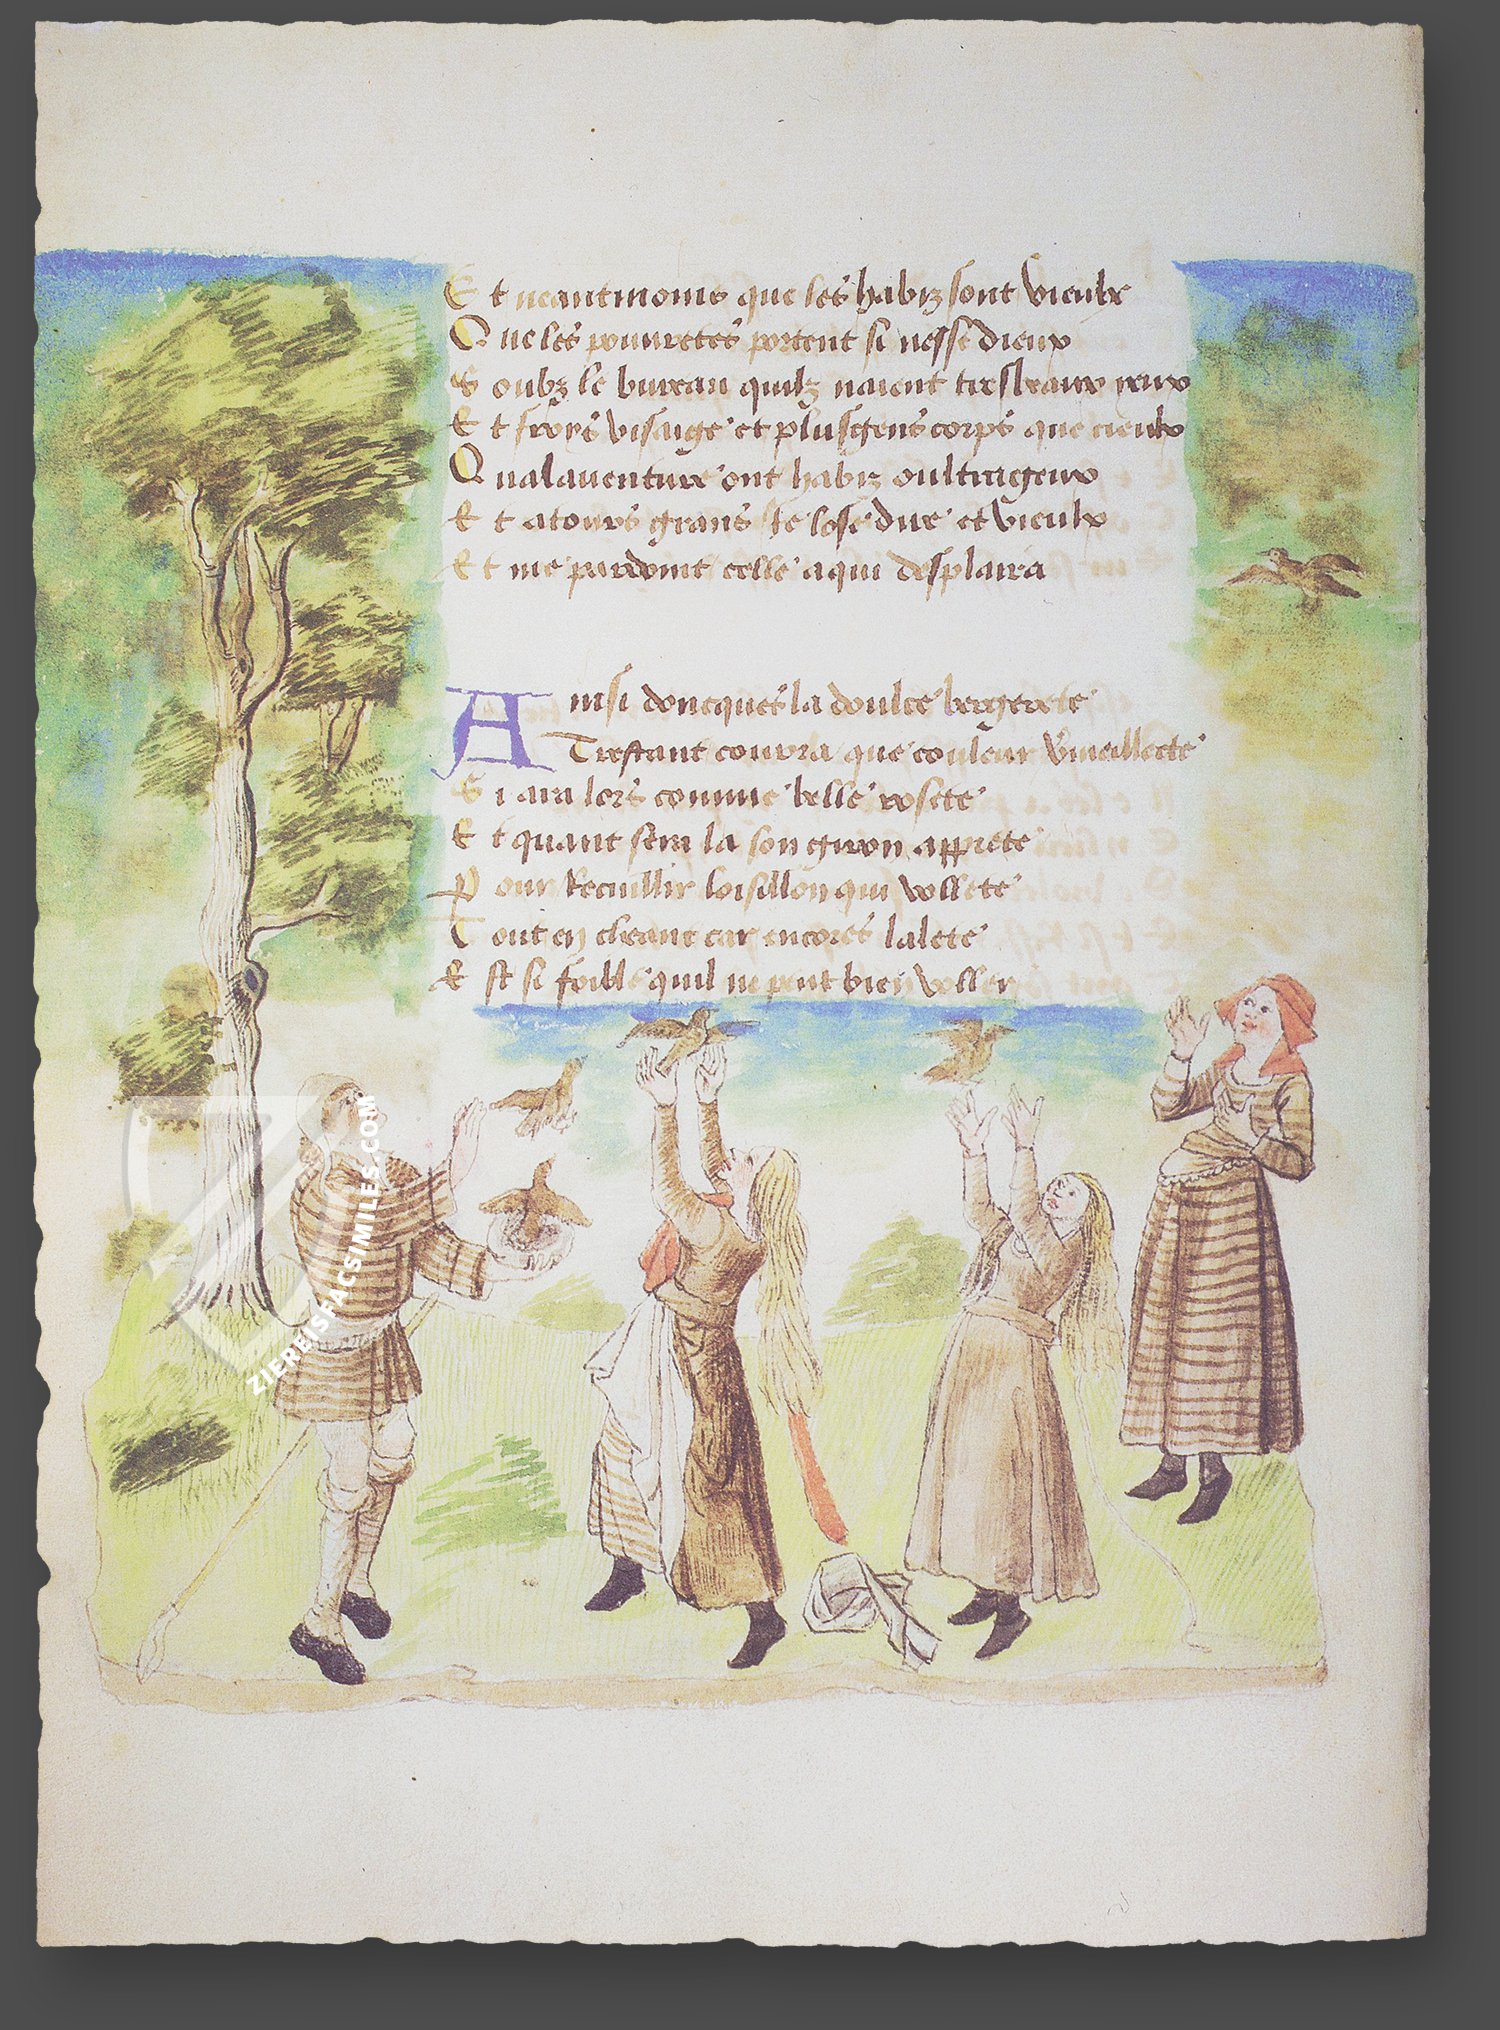 Et neantmoins que les habiz sont vieulx
Que les pouuretes portent si nesse dieux
Soubz le bureau quilz naient tresbeaux yeux
Et froys visaige et plus gens corps que cieulx
Qualauenture ont habiz oultrageux
Et atours grans le lose dire et vieulx
Et me pardoint celle a qui desplaira
Ainsi doncques la doulce bergerete
Tirestant courra que couleur vmeillecte
Si aura lors comme belle rosete
Et quant sera la son giron apprete
Pour Recuillir loisillon qui vollete
Tout en cheant car encores lalete
Est si foible quil ne peut bien voller
ZIEREISFACSIMILES.COM